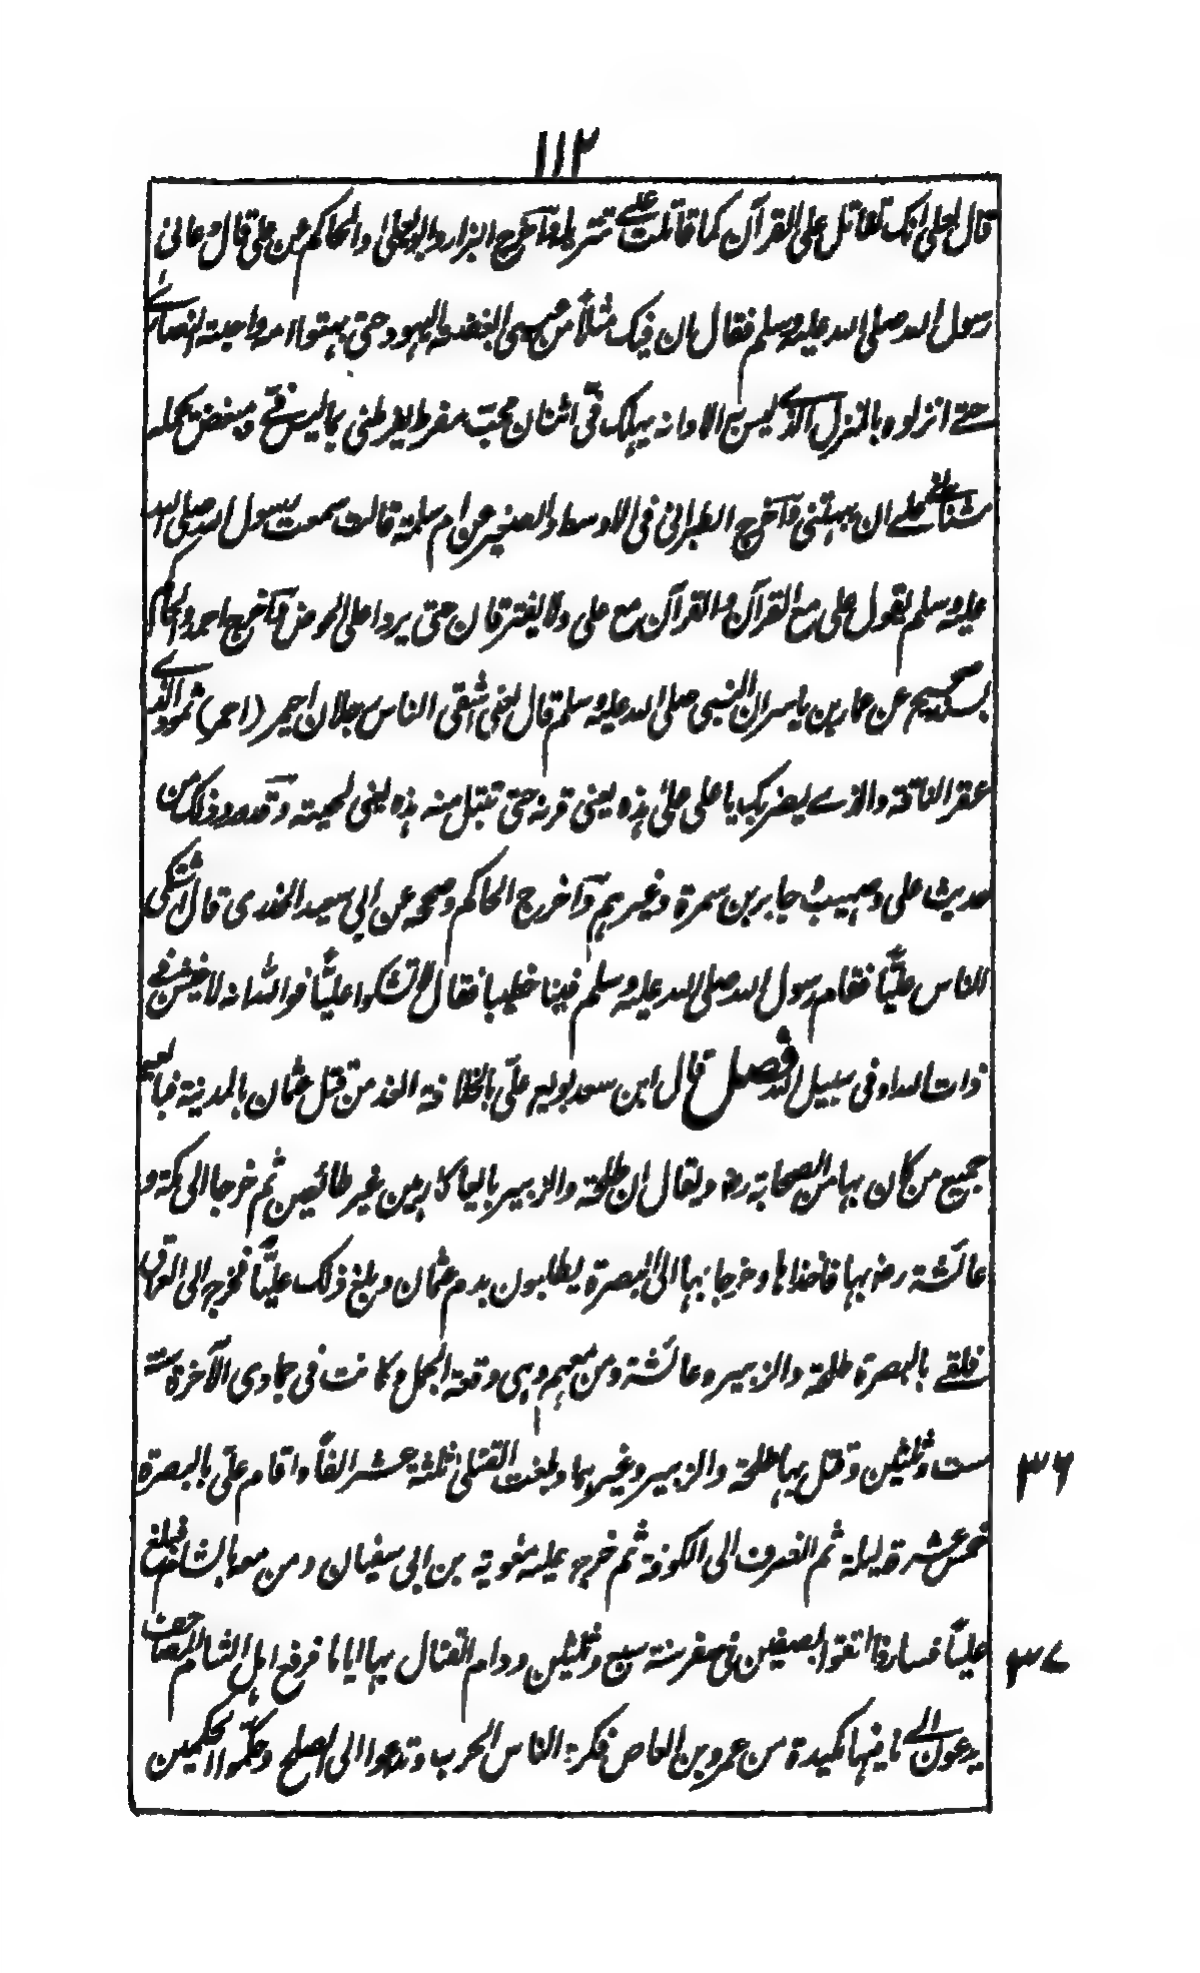 ١١٢
قال لعلی انک تقاتل علی القرآن کما قاتلت علی تنزیله وآخرج البزار وابو یعلی والحاکم عن علی قال دعانی
رسول الله صلی الله علیه وسلم فقال ان فیک مثلاً من عیسی ابغضته الیهود حتی بهتوا امه واحبته النصاری
حتے انزلوه بالمنزل الذے لیس به الا وانه یهلک فی اثنان محب مفرط یفرطنی بما لیس فے ومبغض یحمله
شنانی علے ان یبهتنی وآخرج الطبرانی فی الاوسط والصغیر عن ام سلمة قالت سمعت رسول الله صلی الله
علیه وسلم یقول علی مع القرآن والقرآن مع علی ولا یفترقان حتی یردا علی الحوض وآخرج احمد والحاکم
بسند صحیح عن عمار بن یاسر ان النبی صلی الله علیه وسلم قال لعلی اشقی الناس رجلان احیمر (احمر) ثمود الذے
عقر الناقة والذے یضربک یا علی علی هذه یعنی قرنه حتی تبتل منه هذه یعنی لحیته وقد ورد ذلک من
حدیث علی وصهیب وجابر بن سمرة وغیرهم وآخرج الحاکم وصححه عن ابی سعید الخدری قال اشتکی
الناس علیّاً فقام رسول الله صلی الله علیه وسلم فینا خطیباً فقال لا تشکوا علیّاً فوالله انه لاخیشن فے
ذات الله او فی سبیل الله فصل قال ابن سعد بویع علّی بالخلافة الغد من قتل عثمان بالمدینة فبایعه
جمیع من کان بها من الصحابة رضه ویقال ان طلحة والزبیر بایعا کارهین غیر طائعین ثم خرجا الی مکة و
عائشة رضه بها فاخذاها وخرجا بها الی البصرة یطلبون بدم عثمان وبلغ ذلک علیّاً فخرج الی العراق
فلقے بالبصرة طلحة والزبیر وعائشة ومن معهم وهی وقعة الجمل وکانت فی جمادی الآخرة سنة
ست وثلثین وقتل بها طلحة والزبیر وغیرهما وبلغت القتلی ثلثة عشر الفاً واقام علّی بالبصرة
٣٦
خمس عشرة لیلة ثم انصرف الی الکوفة ثم خرج علیه معویة بن ابی سفیان ومن معه بالشام فبلغ
علیّاً فسار فالتقوا بصفین فی صفر سنة سبع وثلثین ودام القتال بها ایاما فرفع اهل الشام المصاحف
٣٧
یدعون الی ما فیها مکیدة من عمرو بن العاص فکره الناس الحرب وتداعوا الی الصلح وحکّموا الحکمین